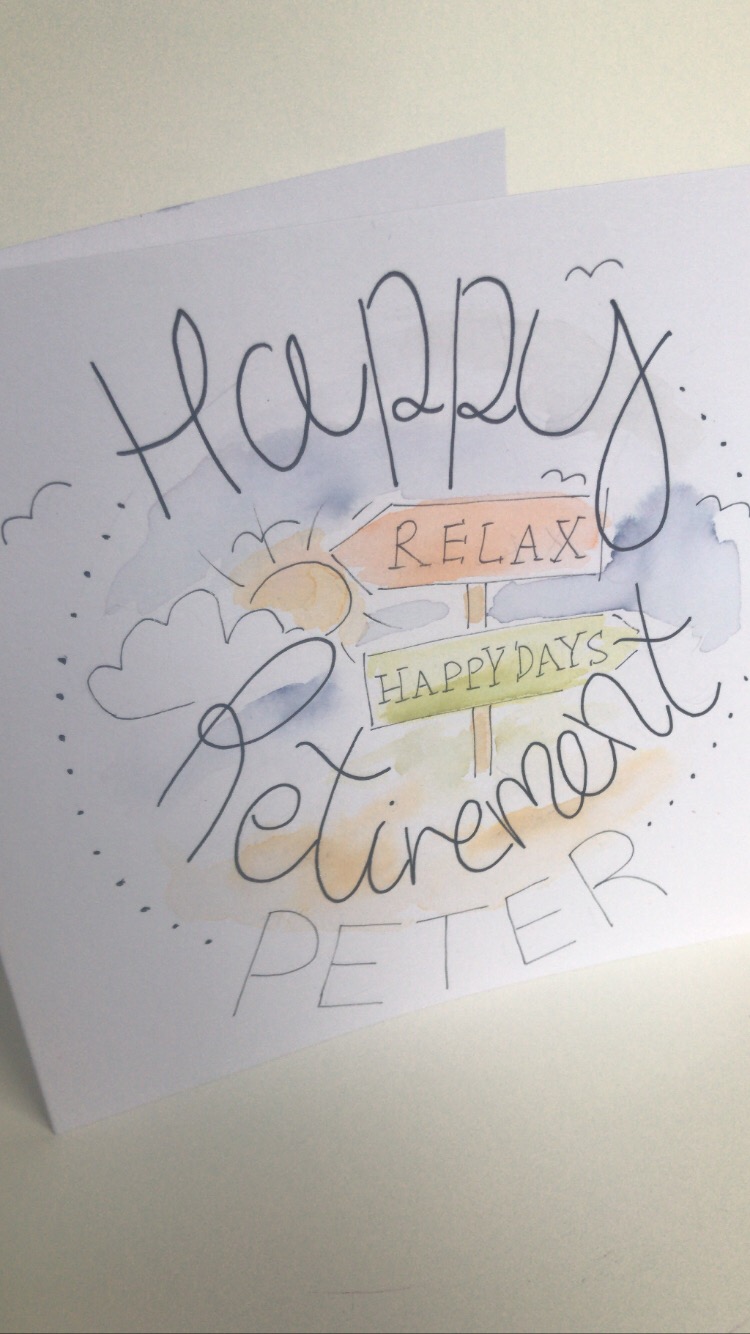 Happy
RELAX
HAPPY DAYS
Retirement
PETER